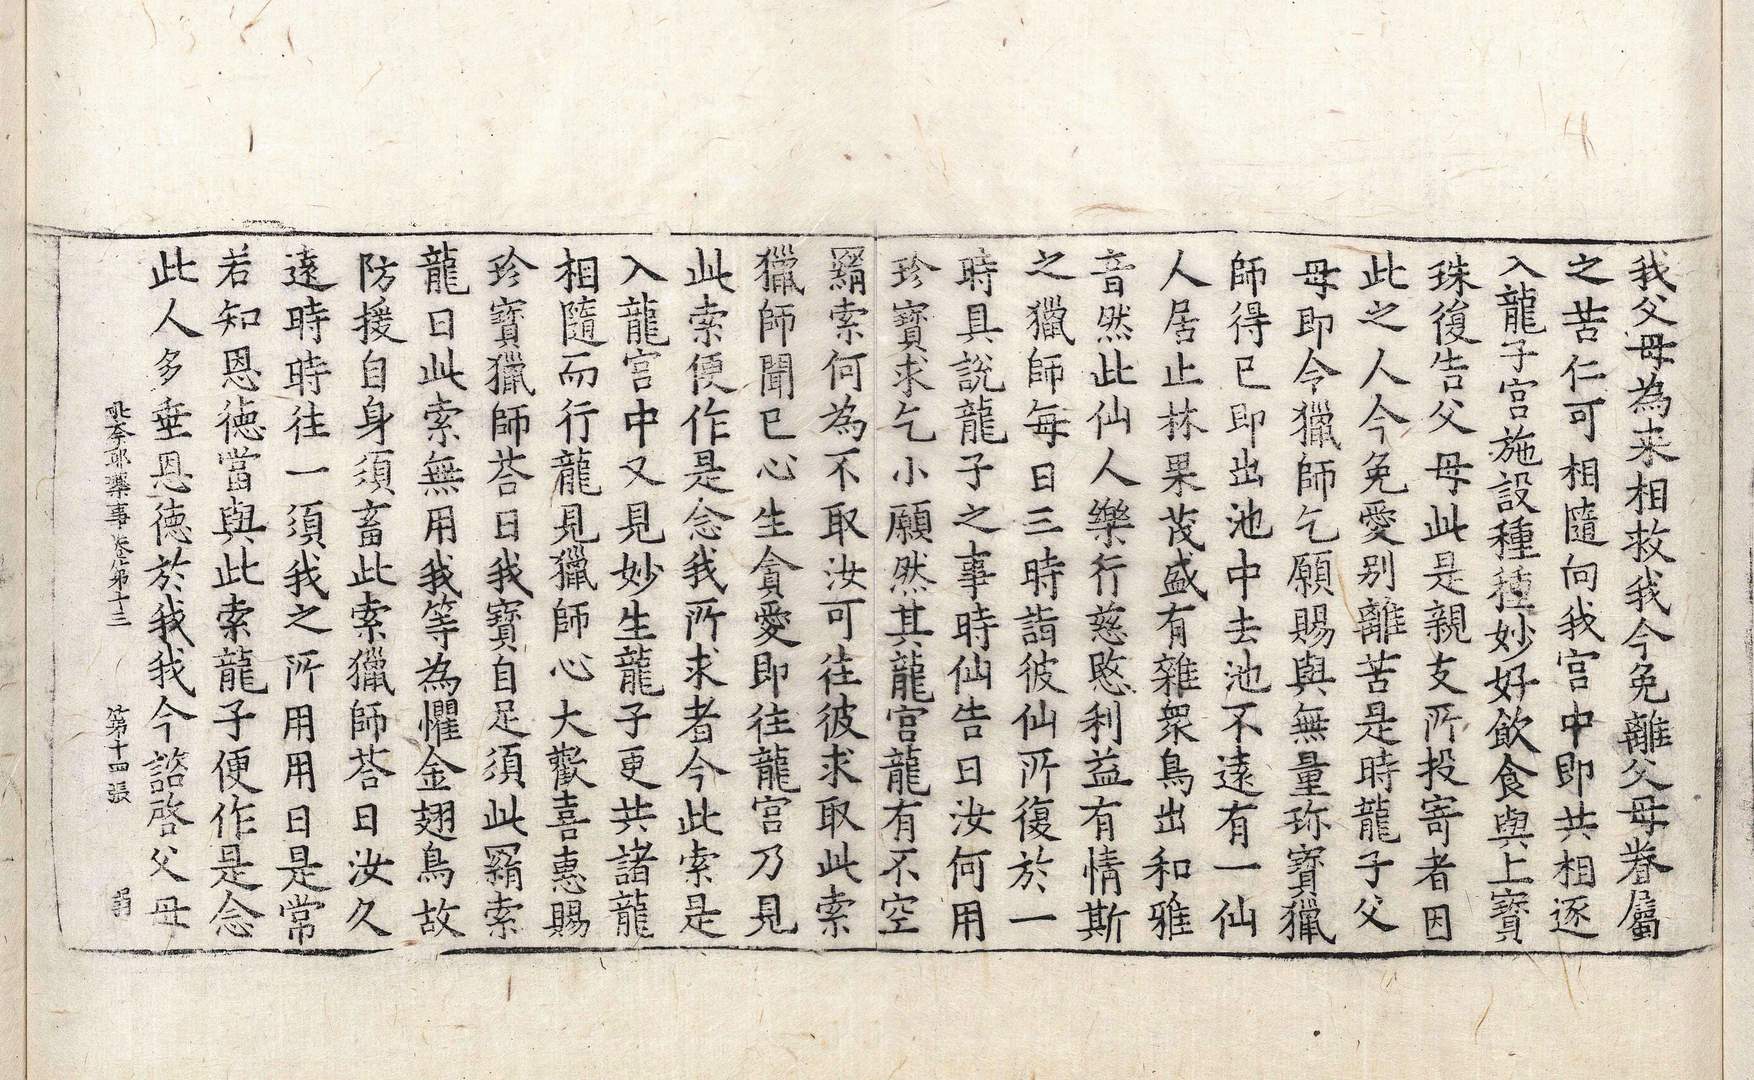 我父母為来相救我今免離父母眷屬
之苦仁可相隨向我宮中即共相逐
入龍子宮施設種種妙好飲食與上寶
珠復告父母此是親支所投寄者因
此之人今免愛別離苦是時龍子父
母即令獵師乞願賜與無量珎寶獵
師得已即出池中去池不遠有一仙
人居止林果茂盛有雜衆鳥出和雅
音然此仙人樂行慈愍利益有情斯
之獵師每日三時詣彼仙所復於一
時具說龍子之事時仙告日汝何用
珎寶求乞小願然其龍宮龍有不空
羂索何為不取汝可往彼求取此索
獵師聞已心生貪愛即往龍宮乃見
此索便作是念我所求者今此索是
入龍宮中又見妙生龍子更共諸龍
相隨而行龍見獵師心大歡喜惠賜
珎寶獵師荅日我寶自足須此羂索
龍日此索無用我等為懼金翅鳥故
防援自身須畜此索獵師荅日汝久
遠時時往一須我之所用用日是常
若知恩德當與此索龍子便作是念
此人多垂恩德於我我今諮啓父母
耶藥事卷第十三 第十四張